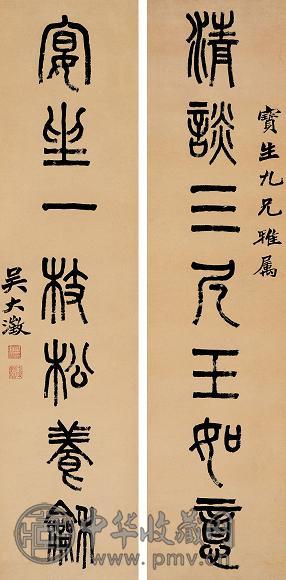 寶生九兄雅属
清談三尺玉如意
宴坐一枝松養龢
吳大澂
中华收藏网
www.pmv.cn